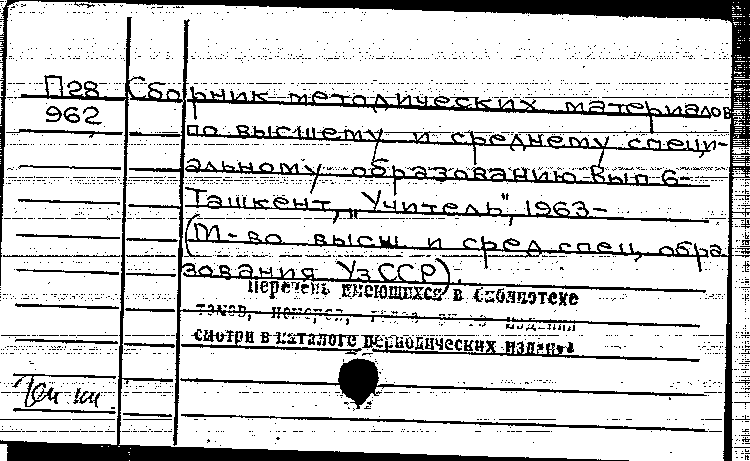 П28 Сборник методических материалов
962 по высшему и среднему специ-
альному образованию. Вып 6-
Ташкент, „Учитель", 1963-
(М-во высш и сред. спец, обра
зования УзССР).
Перечень имеющихся в библиотеке
томов, номеров, издания
смотри в каталоге периодических изданий